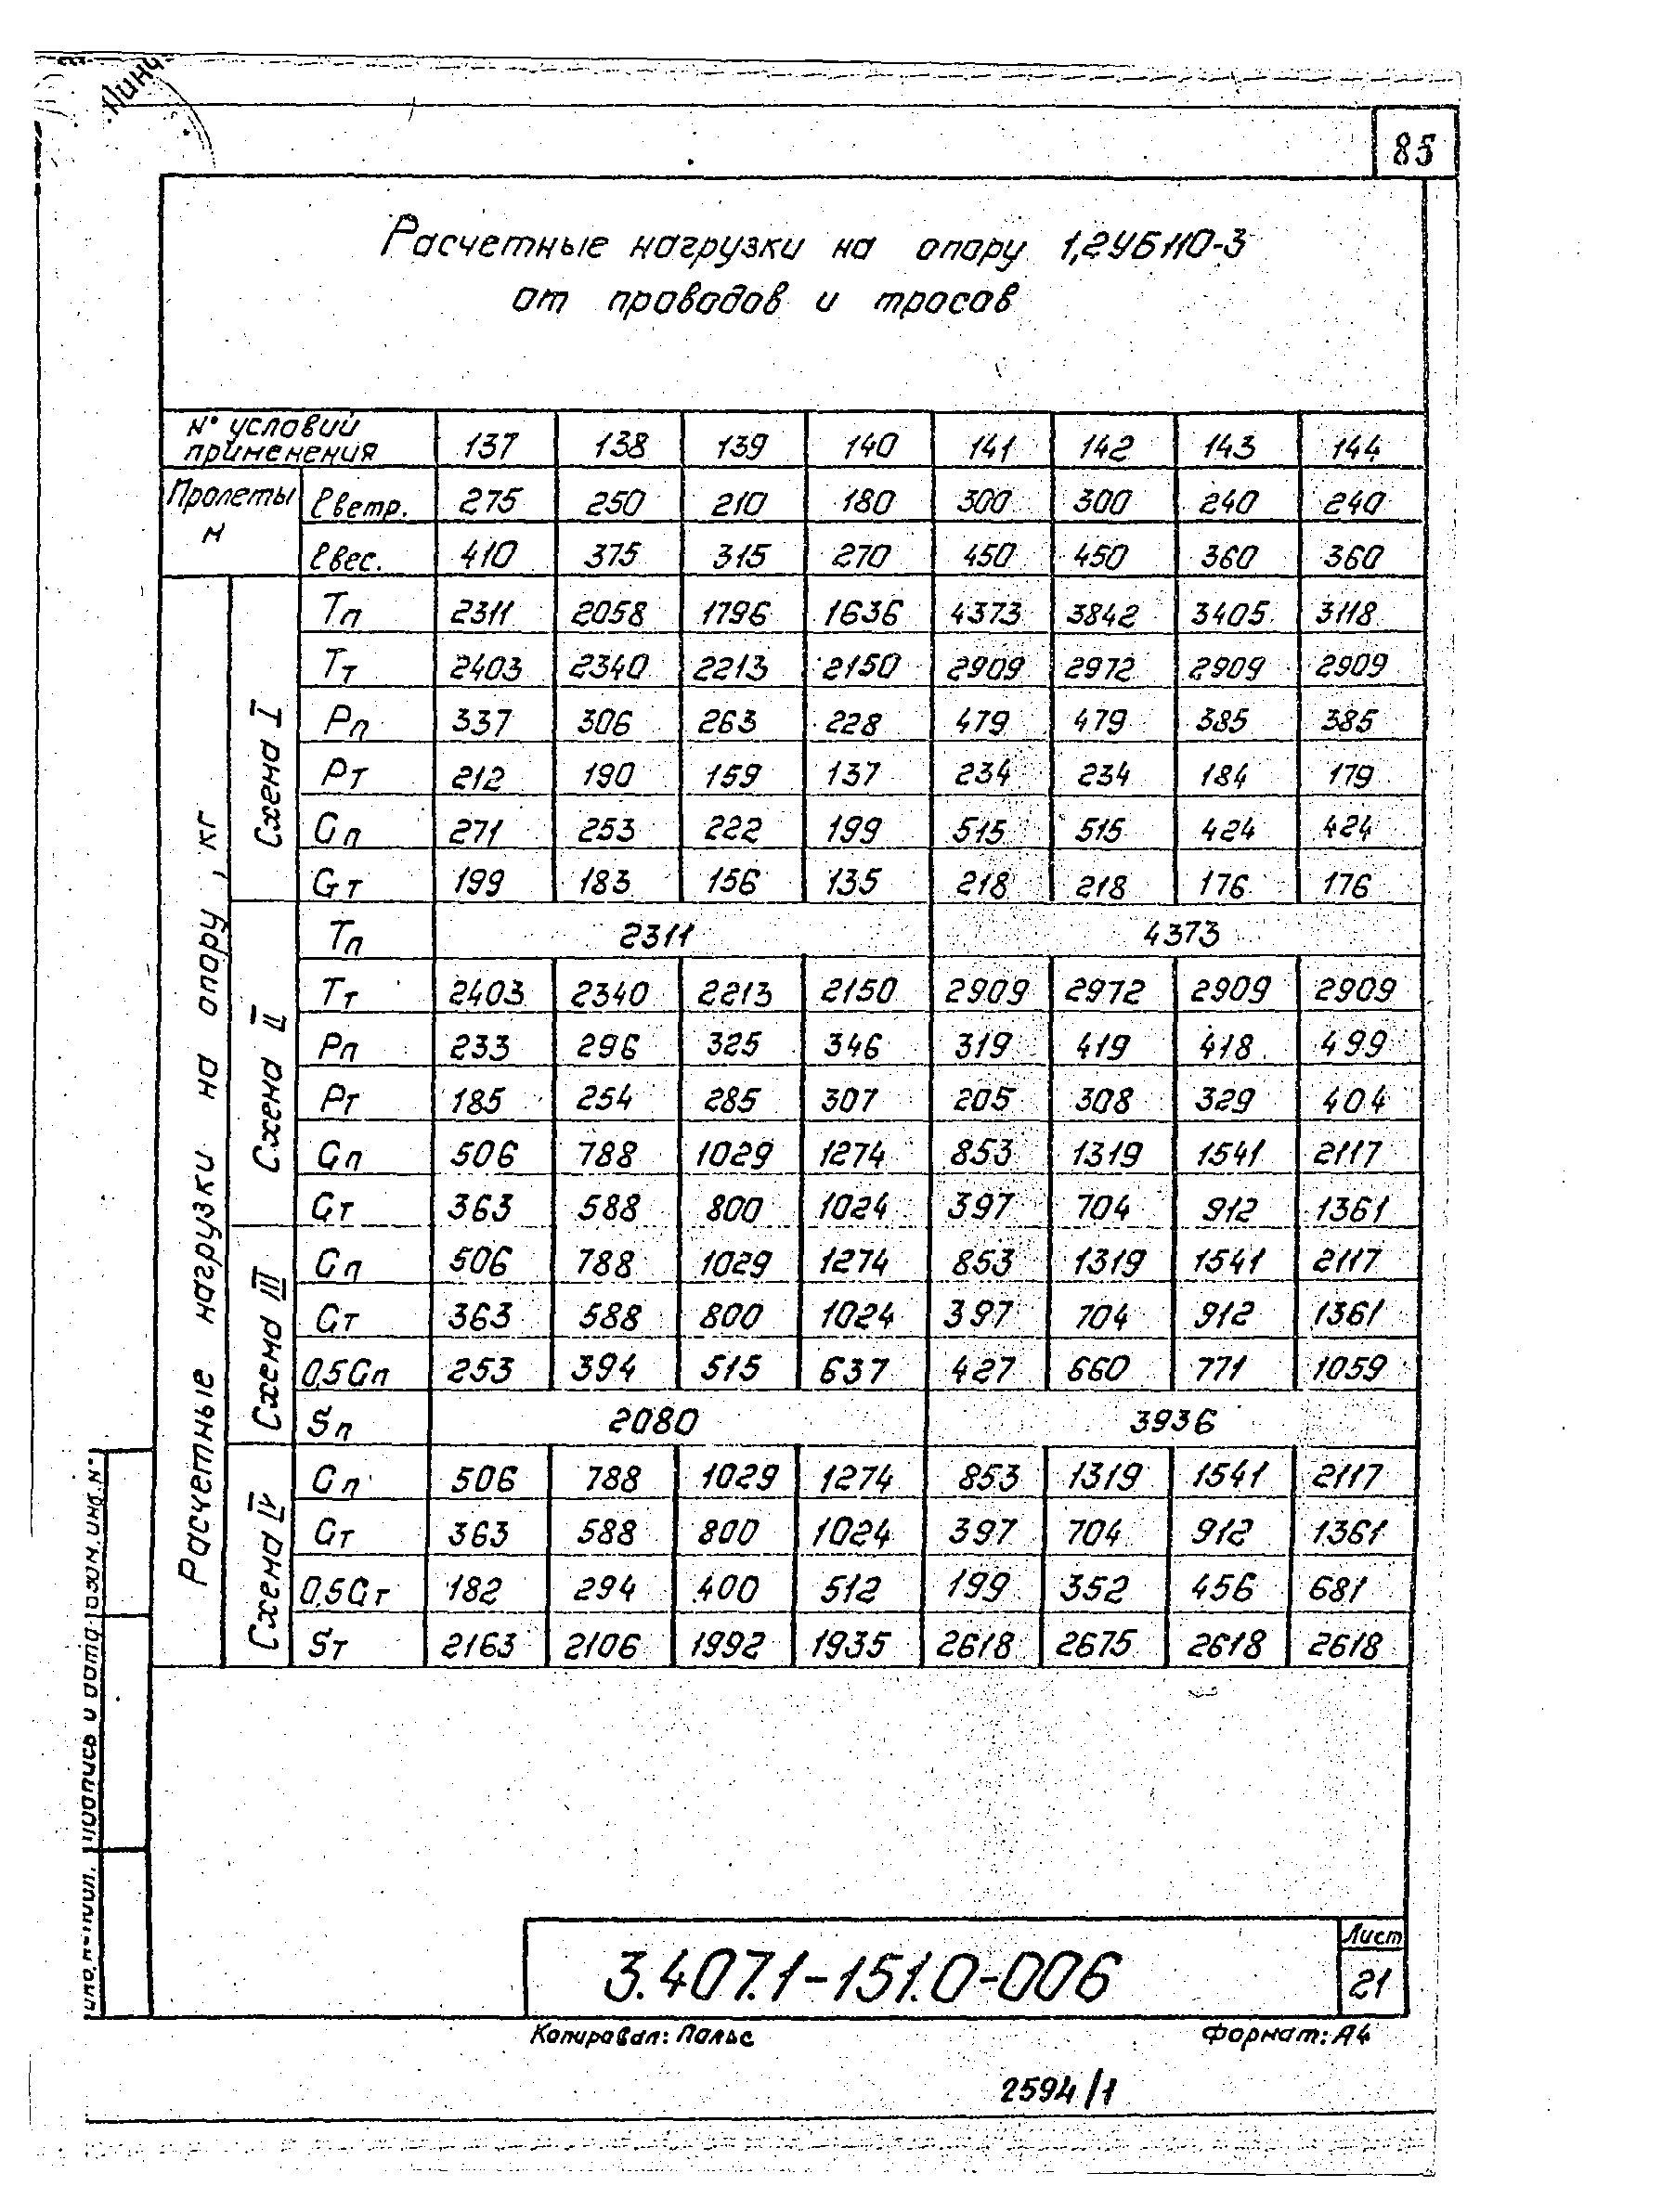 85
Расчетные нагрузки на опору 1,2УБ110-3
от проводов и тросов
№ условий применения 137 138 139 140 141 142 143 144
Пролеты м
ℓветр. 275 250 210 180 300 300 240 240
ℓвес. 410 375 315 270 450 450 360 360
Расчетные нагрузки на опору, кг
Схема I
Тп 2311 2058 1796 1636 4373 3842 3405 3118
Тт 2403 2340 2213 2150 2909 2972 2909 2909
Рп 337 306 263 228 479 479 385 385
Рт 212 190 159 137 234 234 184 179
Gп 271 253 222 199 515 515 424 424
Gт 199 183 156 135 218 218 176 176
Схема II
Тп 2311 4373
Тт 2403 2340 2213 2150 2909 2972 2909 2909
Рп 233 296 325 346 319 419 418 499
Рт 185 254 285 307 205 308 329 404
Gп 506 788 1029 1274 853 1319 1541 2117
Gт 363 588 800 1024 397 704 912 1361
Схема III
Gп 506 788 1029 1274 853 1319 1541 2117
Gт 363 588 800 1024 397 704 912 1361
0,5Gп 253 394 515 637 427 660 771 1059
Sп 2080 3936
Схема IV
Gп 506 788 1029 1274 853 1319 1541 2117
Gт 363 588 800 1024 397 704 912 1361
0,5Gт 182 294 400 512 199 352 456 681
Sт 2163 2106 1992 1935 2618 2675 2618 2618
Инв. № подл. Подпись и дата Взам. инв. №
3.407.1-151.0-006
Лист
21
Копировал: Пальс Формат: А4
2594/1